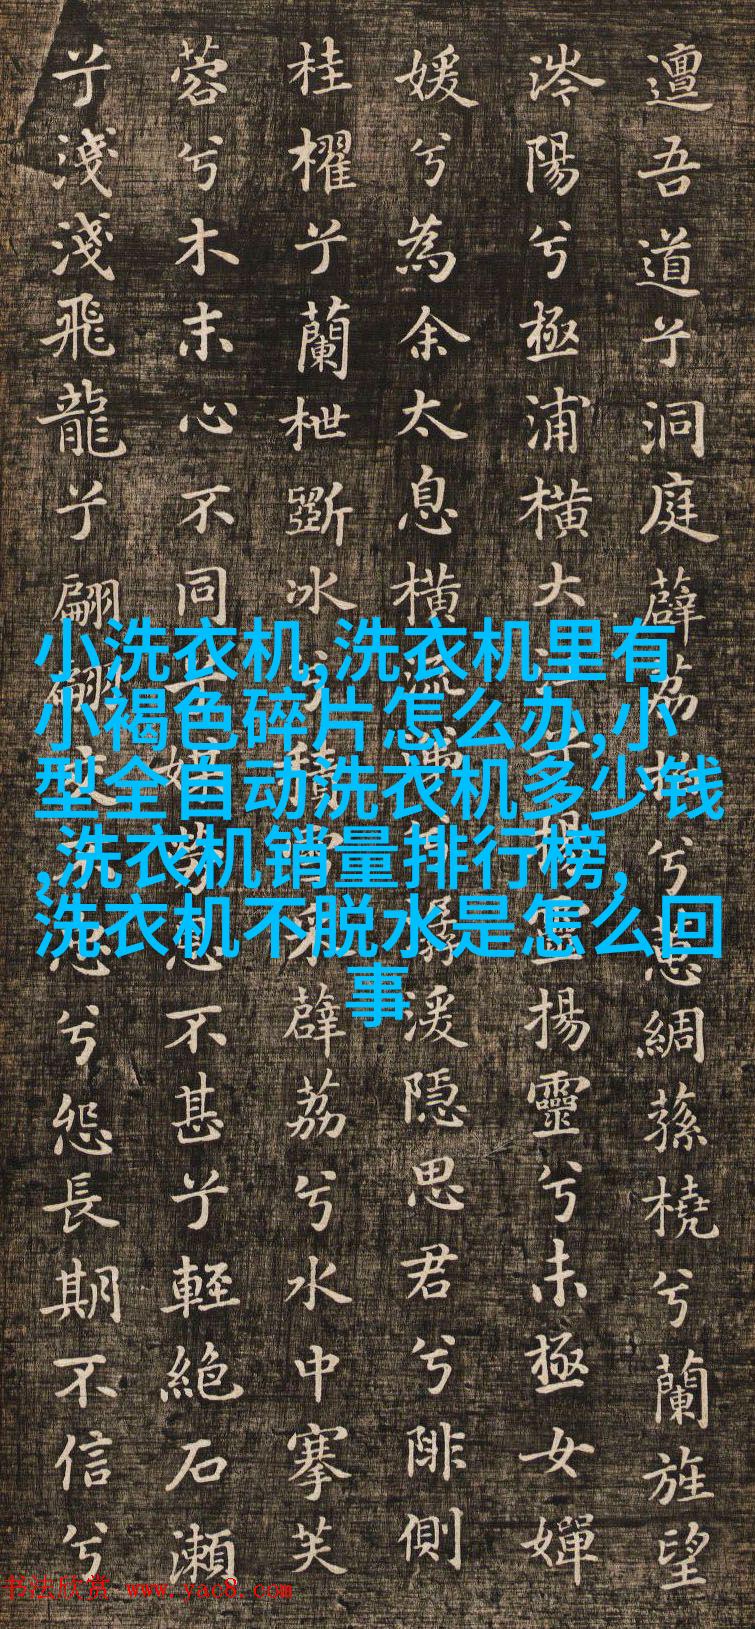 邅吾道兮洞庭薜荔兮蕙綢蓀橈兮蘭旌望
涔陽兮極浦橫大江兮揚靈揚靈兮未極女嬋
媛兮為余太息橫流涕兮潺湲隱思君兮陫側
桂櫂兮蘭枻斲冰兮積雪采薜荔兮水中搴芙
蓉兮木末心不同兮媒勞恩不甚兮輕絕石瀨
兮淺淺飛龍兮翩翩交不忠兮怨長期不信兮
小洗衣机,洗衣机里有
小褐色碎片怎么办,小
型全自动洗衣机多少钱
,洗衣机销量排行榜,
洗衣机不脱水是怎么回
事
书法欣赏 www.yac8.com